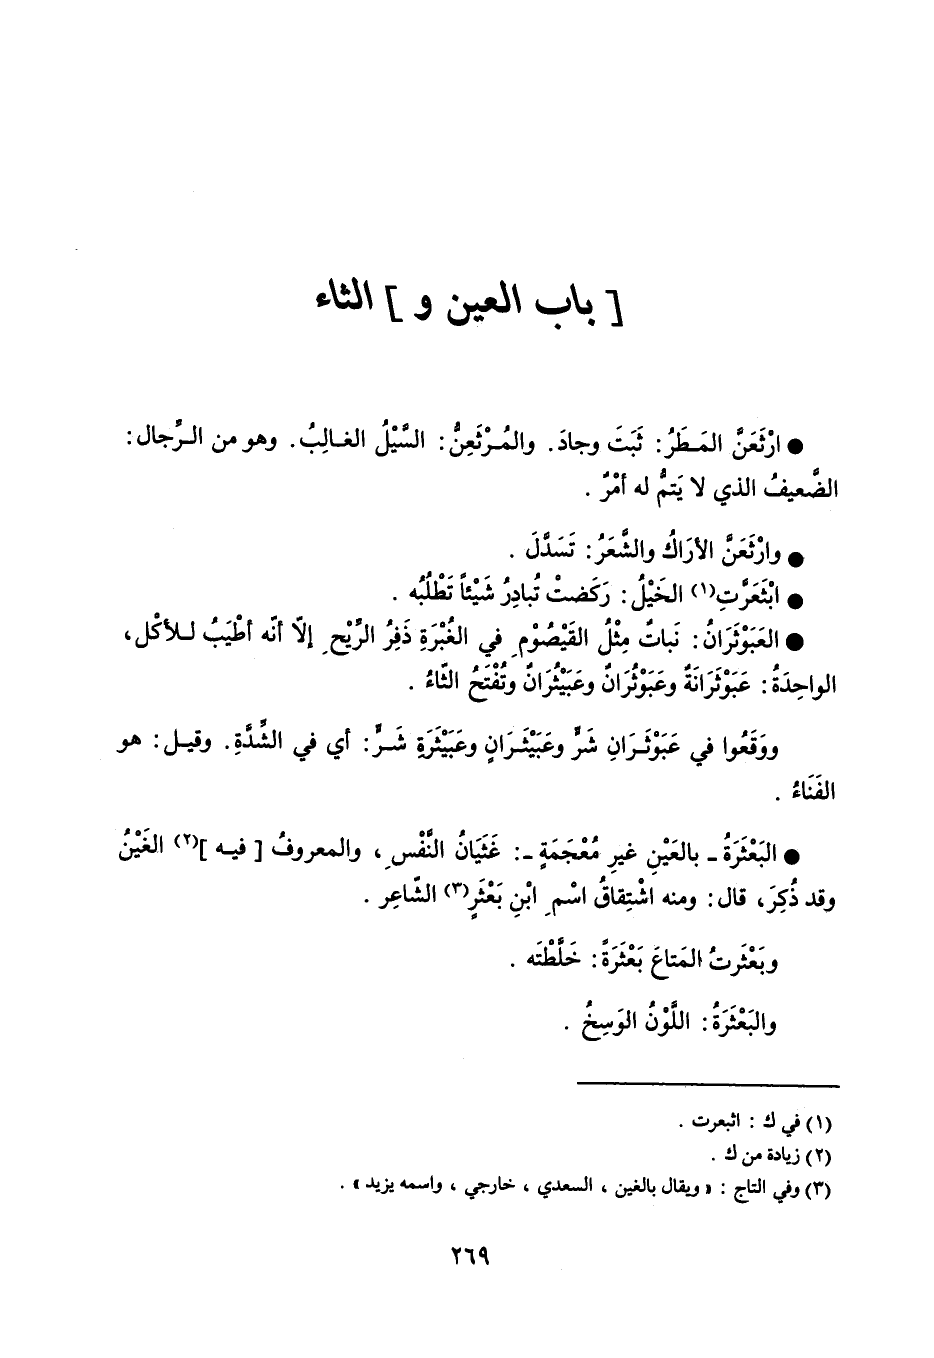 [ باب العين و ] الثاء
● ارْثَعَنَّ المَـطَرُ: ثَبَتَ وجادَ. والمُـرْثَعِنُّ: السَّيْلُ الغـالِبُ. وهو من الـرِّجال:
الضَّعيفُ الذي لا يَتمُّ له أمْرٌ .
● وارْثَعَنَّ الأرَاكُ والشَّعَرُ: تَسَدَّلَ .
● ابْثَعَرَّتِ(١) الخَيْلُ: رَكَضتْ تُبادِرُ شَيْئاً تَطْلُبُه .
● العَبَوْثَرَانُ: نَباتٌ مِثْلُ القَيْصُوْمِ في الغُبْرَةِ ذَفِرُ الرِّيْحِ إلاّ أنّه أطْيَبُ لـلأكْل،
الواحِدَةُ: عَبَوْثَرَانَةٌ وعَبَوْثُرَانٌ وعَبَيْثُرَانٌ وتُفْتَحُ الثّاءُ .
ووَقَعُوا في عَبَوْثَـرَانِ شَرٍّ وعَبَيْثَـرَانٍ وعَبَيْثَرَةِ شَـرٍّ: أي في الشِّدَّةِ. وقيـل: هو
الفَنَاءُ .
● البَعْثَرَةُ ـ بالعَيْنِ غيرِ مُعْجَمَةٍ ـ: غَثَيَانُ النَّفْسِ، والمعروفُ [ فيـه ](٢) الغَيْنُ
وقد ذُكِرَ، قال: ومنه اشْتِقاقُ اسْمِ ابْنِ بَعْثَرٍ(٣) الشّاعِر .
وبَعْثَرتُ المَتاعَ بَعْثَرَةً: خَلَّطْتَه .
والبَعْثَرَةُ: اللَّوْنُ الوَسِخُ .
(١) في ك : اثبعرت .
(٢) زيادة من ك .
(٣) وفي التاج : « ويقال بالغين ، السعدي ، خارجي ، واسمه يزيد » .
٢٦٩